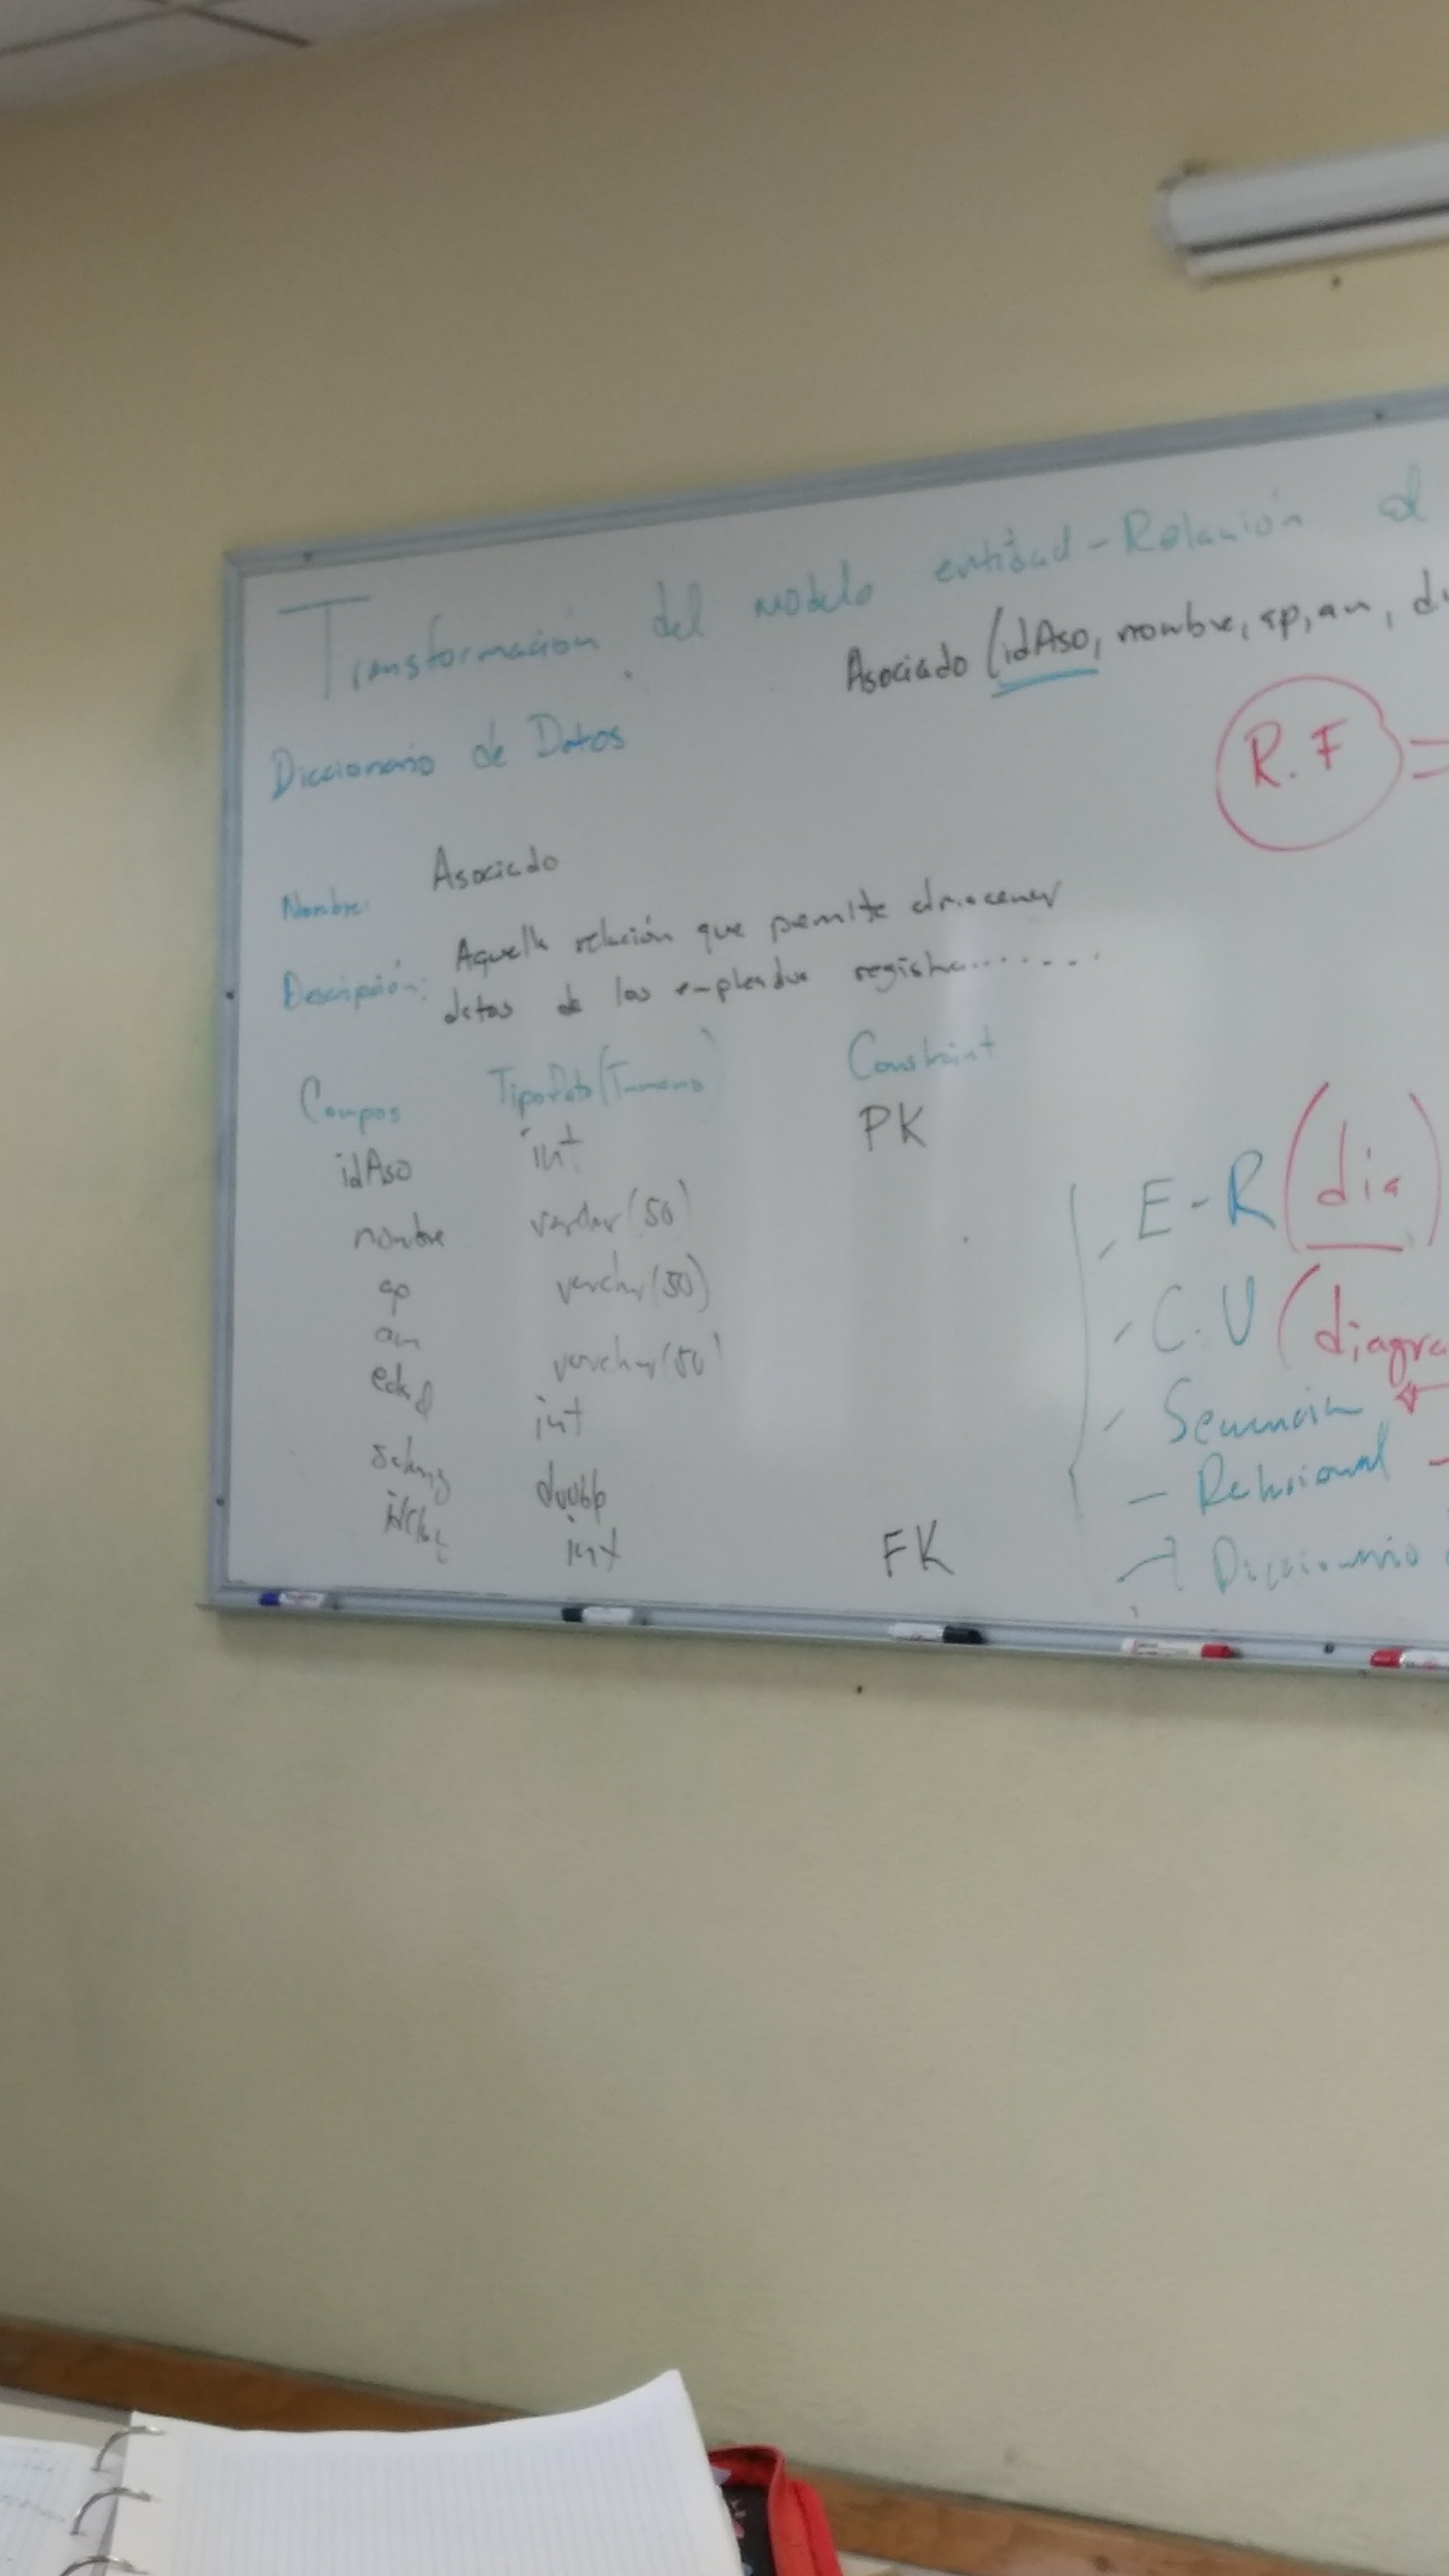 Transformación del modelo entidad-Relación al
Asociado (idAso, nombre, ap, am,
Diccionario de Datos
R.F =
Nombre: Asociado
Descripción: Aquella relación que permite almacenar
datos de los empleados registra.......
Campos TipoDato(Tamano) Constraint
idAso int PK
nombre varchar(50)
ap varchar(50)
am varchar(50)
edad int
double
int FK
E-R (dia)
C.U (diagra
Secuencia
- Relacional -
Diccionario